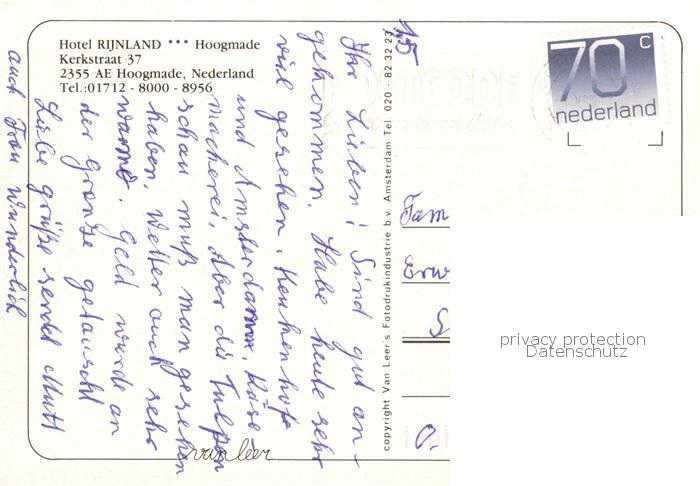 Hotel RIJNLAND *** Hoogmade
Kerkstraat 37
2355 AE Hoogmade, Nederland
Tel.:01712 - 8000 - 8956
Ihr Lieben! Sind gut an-
gekommen. Habe heute sehr
viel gesehen. Keukenhofe
und Amsterdamm, Käse-
macherei, Aber die Tulpen
schau muß man gesehen
haben. Wetter auch sehr
warm. Geld wurde an
der Grenze getauscht
Liebe grüße sendet Mutti
auch Frau Wunderlich
copyright Van Leer's Fotodrukindustrie b.v. Amsterdam Tel 020 - 82 32 23
van leer
70 c
nederland
Fam
Erw
privacy protection
Datenschutz